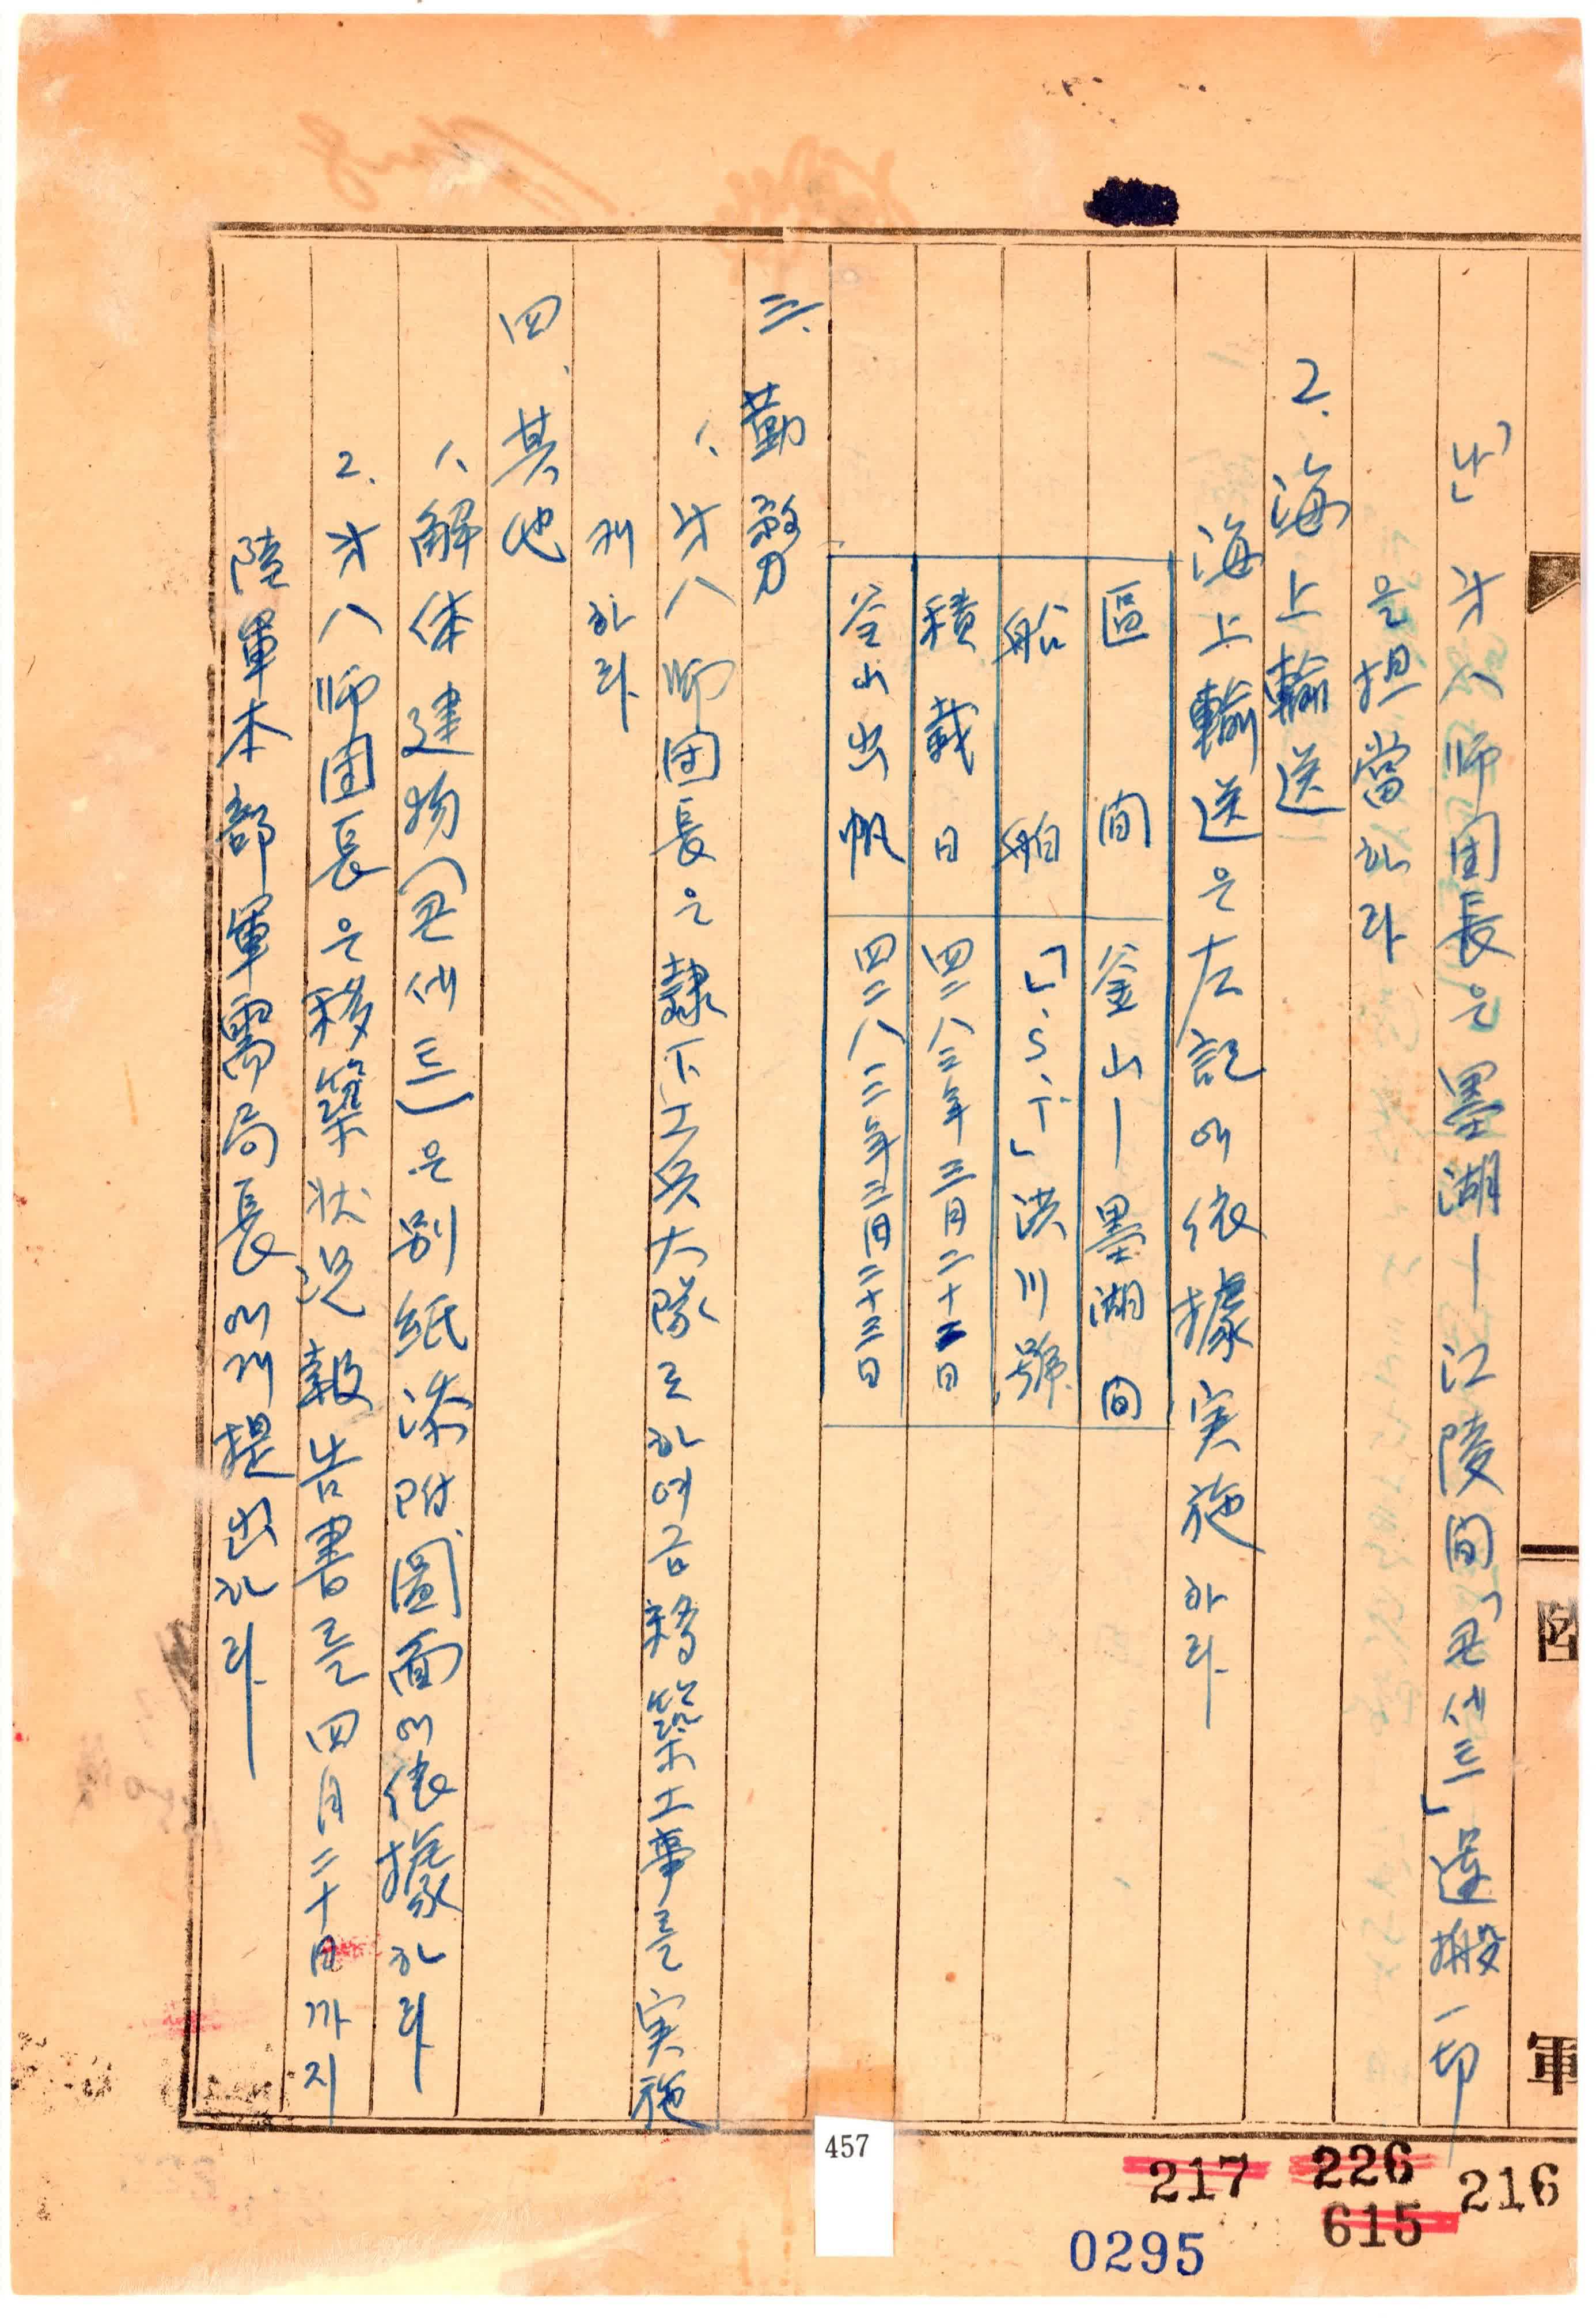 「나」 才八師団長은 墨湖—江陵間「콘세트三」運搬一切
을 担當하라
2. 海上輸送
海上輸送은 左記에 依據 実施하라
區間 釜山—墨湖間
船舶 「L.S.T」洪川號
積載日 四二八三年三月二十二日
釜山出帆 四二八三年三月二十三日
三. 勤勞
1. 才八師団長은 隷下 工兵大隊로 하여금 移築工事를 実施
케 하라
四. 其他
1. 解体建物(콘세트三)은 別紙 添附 圖面에 依據하라
2. 才八師団長은 移築状況報告書를 四月二十日까지
陸軍本部 軍需局長에게 提出하라
陸
軍
457
217
226
216
615
0295